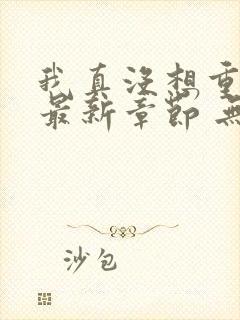 我真没想重
最新章节 无
沙包